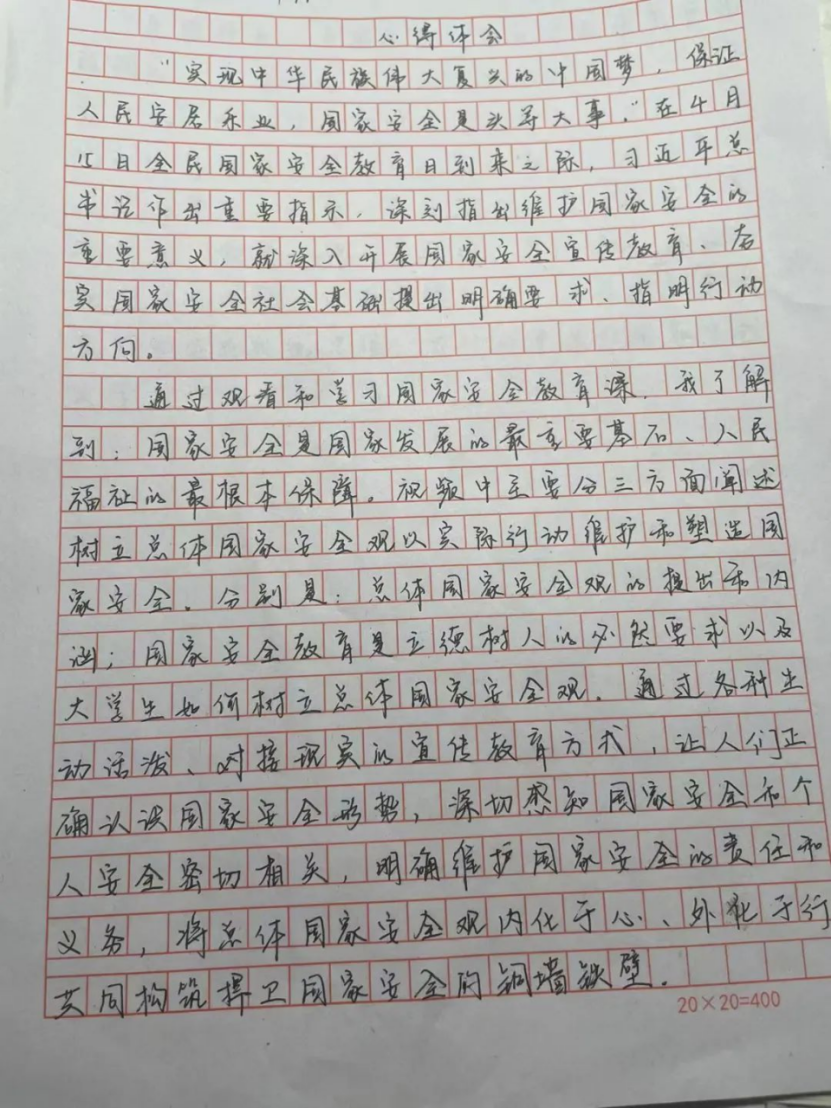 心得体会
“实现中华民族伟大复兴的中国梦，保证
人民安居乐业，国家安全是头等大事。”在4月
15日全民国家安全教育日到来之际，习近平总
书记作出重要指示，深刻指出维护国家安全的
重要意义，就深入开展国家安全宣传教育、夯
实国家安全社会基础提出明确要求、指明行动
方向。
通过观看和学习国家安全教育课，我了解
到：国家安全是国家发展的最重要基石、人民
福祉的最根本保障。视频中主要分三方面阐述
树立总体国家安全观以实际行动维护和塑造国
家安全。分别是：总体国家安全观的提出和内
涵；国家安全教育是立德树人的必然要求以及
大学生如何树立总体国家安全观。通过各种生
动活泼、对接现实的宣传教育方式，让人们正
确认识国家安全形势，深切感知国家安全和个
人安全密切相关，明确维护国家安全的责任和
义务，将总体国家安全观内化于心、外化于行
共同构筑捍卫国家安全的铜墙铁壁。
20×20=400